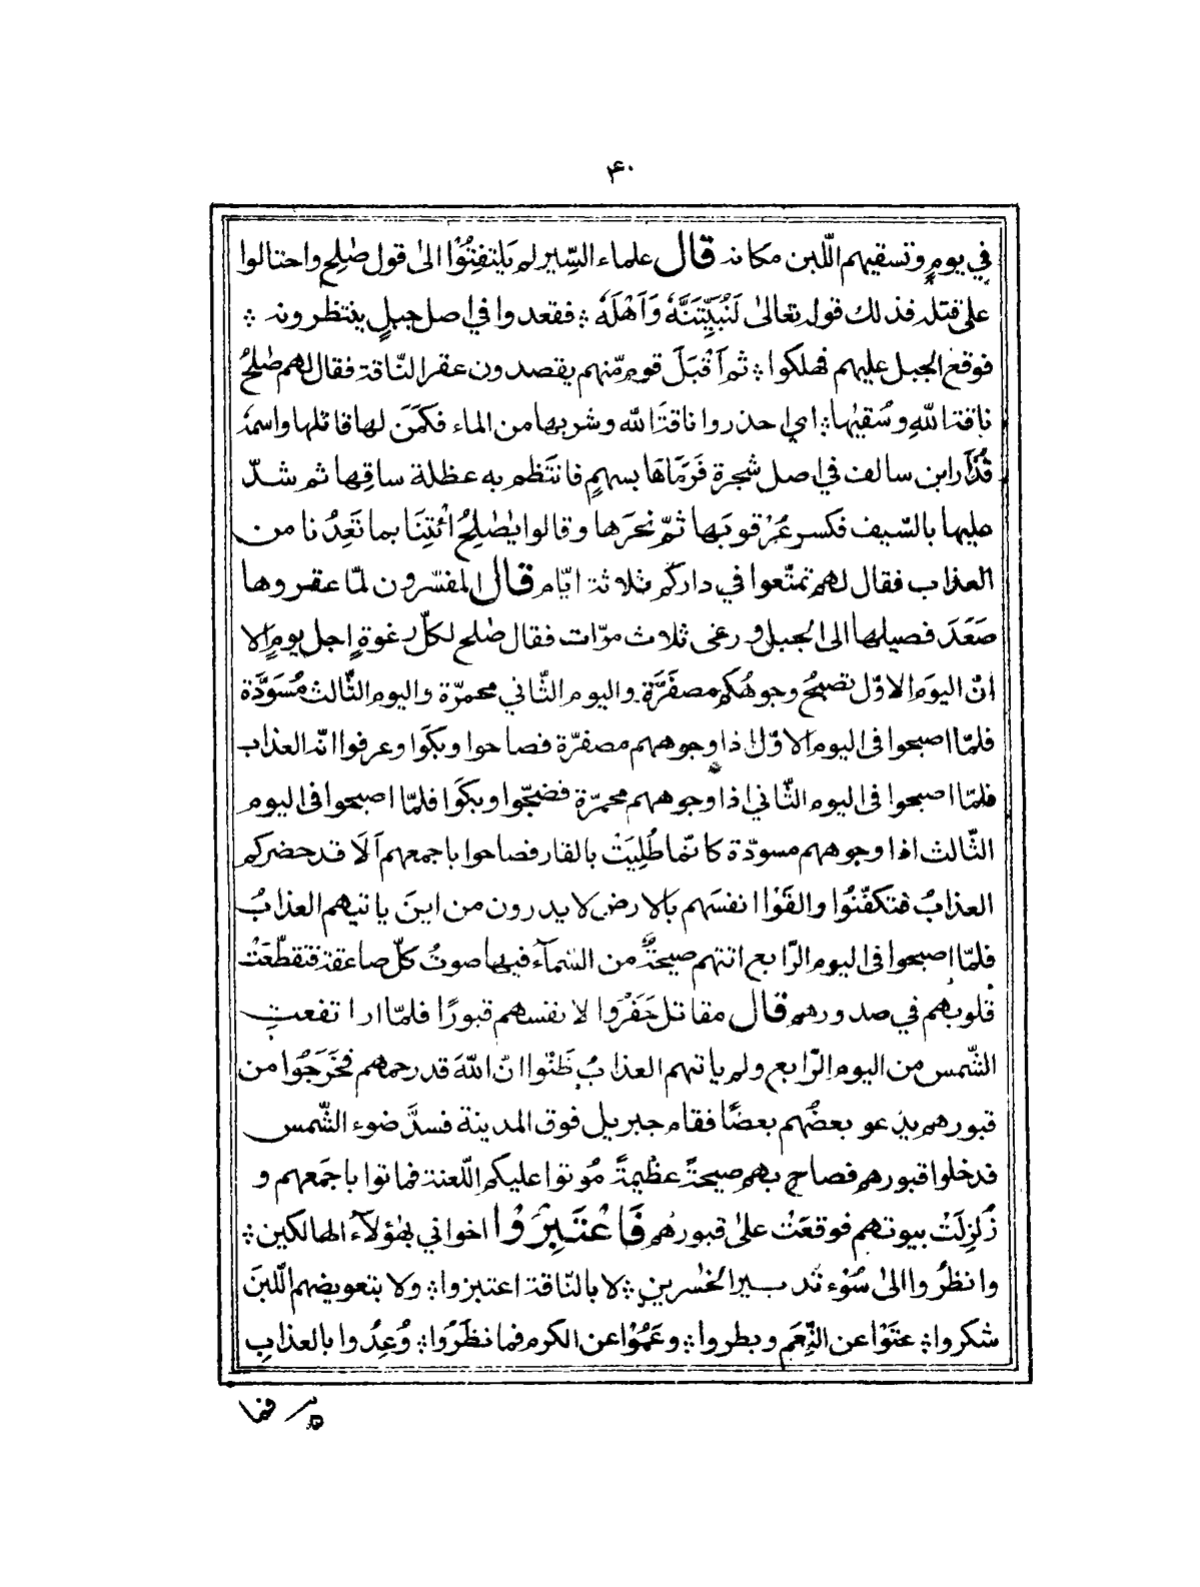 ۴۰
في يومٍ وتسقيهم اللّبن مكانه قال علماء السِّير لم يَلتفِتُوْا الىٰ قول صٰلِح واحتالوا
علىٰ قتله فذلك قوله تعالىٰ لَنُبَيِّتَنَّهٗ وَاَهْلَهٗ ؞ فقعدوا في اصل جبلٍ ينتظرونه ؞
فوقع الجبل عليهم فهلكوا ؞ ثم اَقْبَلَ قوم مّنهم يقصدون عقر النّاقة فقال لهم صٰلِحٌ
ناقة اللّٰهِ وسُقيٰها ؞ اي احذروا ناقةَ اللّٰه وشربها من الماء فكَمَنَ لها قاتلها واسمهٗ
قُدَار ابن سالف في اصل شجرة فَرَمَاهَا بسهمٍ فانتَظم به عظلة ساقِها ثم شدّ
عليها بالسّيف فكسر عُرْقوبَها ثمّ نحَرَها وقالوا يٰصٰلِحُ ائْتِنَا بما تَعِدُنا من
العذاب فقال لهم تمتّعوا في داركم ثلاثة ايّام قال المفسّرون لمّا عقروها
صَعَدَ فصيلها الى الجبل ورغى ثلاث مرّات فقال صٰلح لكلّ رغوةٍ اجل يومٍ الا
انّ اليوَم الاوّل تصبحُ وجوهُكم مصفَرَّة واليوم الثّاني محمرّة واليوم الثّالث مُسَوَدَّة
فلمّا اصبحوا فى اليوم الاوّل اذا وجوههم مصفرّة فصاحوا وبكَوا وعرفوا انّه العذاب
فلمّا اصبحوا فى اليوم الثّاني اذا وجوههم محمرّة فضجّوا وبكَوا فلمّا اصبحوا فى اليوم
الثّالث اذا وجوههم مسودّة كانّما طُلِيَتْ بالقار فصاحوا باجمعهم اَلَا قد حضركم
العذابُ فتكفّنُوا والقَوْا انفسَهم بالارض لا يدرون من اينَ ياتيهم العذابُ
فلمّا اصبحوا فى اليوم الرّابع اتتهم صيحةٌ من السّمآء فيها صوتُ كلّ صاعقة فتقطّعَتْ
قلوبهم في صدورهم قال مقاتل حَفَرُوا لانفسهم قبورًا فلمّا ارا تفعت
الشّمس من اليوم الرّابع ولم ياتهم العذابُ ظَنّوا انّ اللّٰهَ قد رحمهم فخَرَجُوا من
قبورهم يدعو بعضُهم بعضًا فقام جبريل فوق المدينة فسدَّ ضوء الشّمس
فدخلوا قبورهم فصاح بهم صيحةً عظيمةً مُوتوا عليكم اللّعنة فماتوا باجمَعهم و
زُلزِلَتْ بيوتهم فوقعَتْ علىٰ قبورهُم فَاعْتَبِرُوْا اخواني بهٰؤلآء الهالكين ؞
وانظرُوا الىٰ سُوْء تدبير الخٰسرين ؞ لا بالنّاقة اعتبروا ؞ ولا بتعويضهم اللّبنَ
شكروا ؞ عتَوْا عن النِّعَم وبطروا ؞ وعَمُوْا عن الكرم فما نظَرُوا ؞ وُعِدُوا بالعذابِ
فما